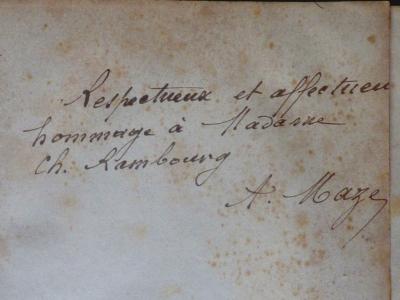 Respectueux et affectueu
hommage à Madame
Ch. Rambourg
A. Maze